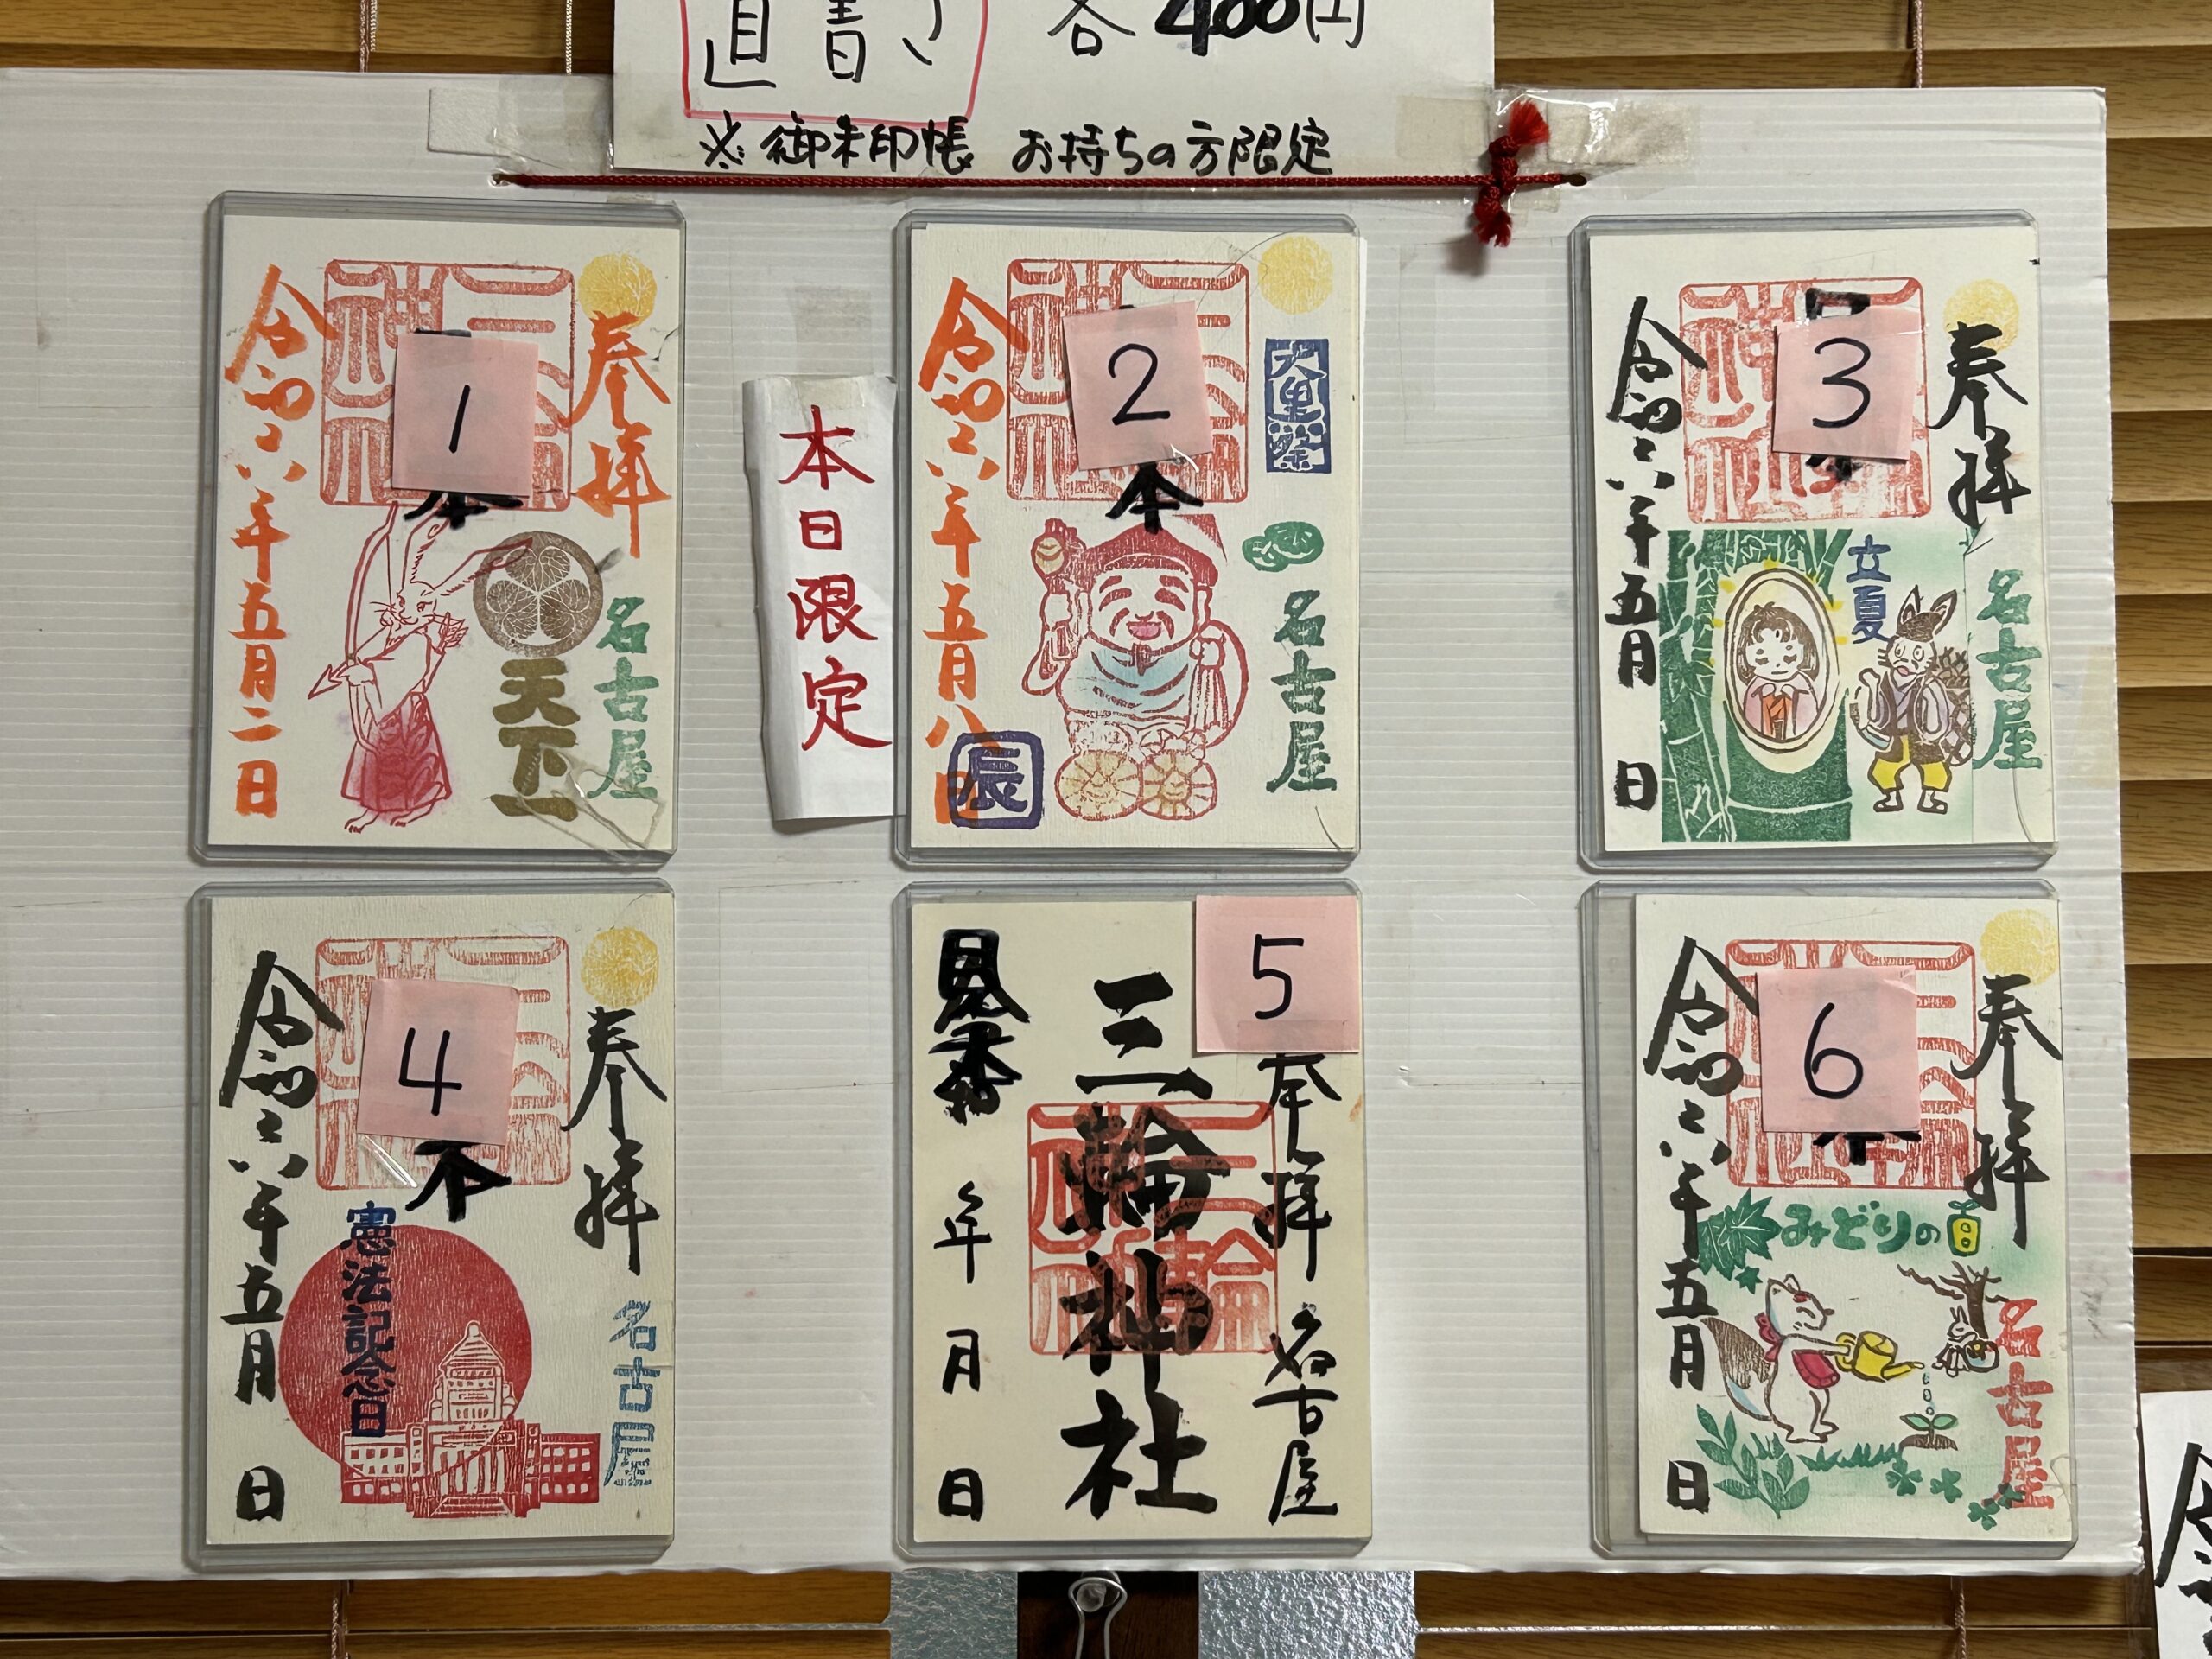 直書き 各400円
※御朱印帳 お持ちの方限定
1
奉拝
名古屋
天下一
令和六年五月二日
本日限定
2
大黒祭
名古屋
本
令和六年五月八日
辰
3
奉拝
名古屋
立夏
令和六年五月 日
4
奉拝
名古屋
憲法記念日
令和六年五月 日
5
奉拝 名古屋
三輪神社
見本
年 月 日
6
奉拝
名古屋
みどりの日
令和六年五月 日